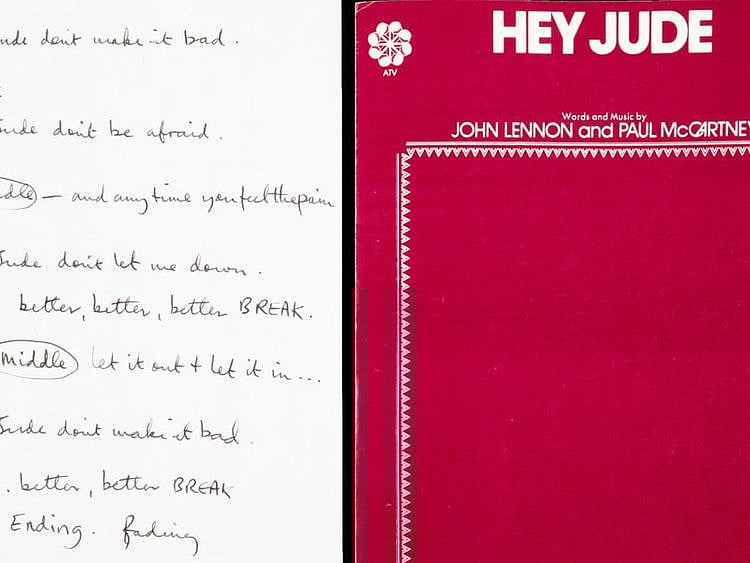 Jude don't make it bad.
Jude don't be afraid.
middle — and any time you feel the pain
Jude don't let me down.
better, better, better BREAK.
middle let it out + let it in...
Jude don't make it bad.
. better, better BREAK
Ending. fading
ATV
HEY JUDE
Words and Music by
JOHN LENNON and PAUL McCARTNEY